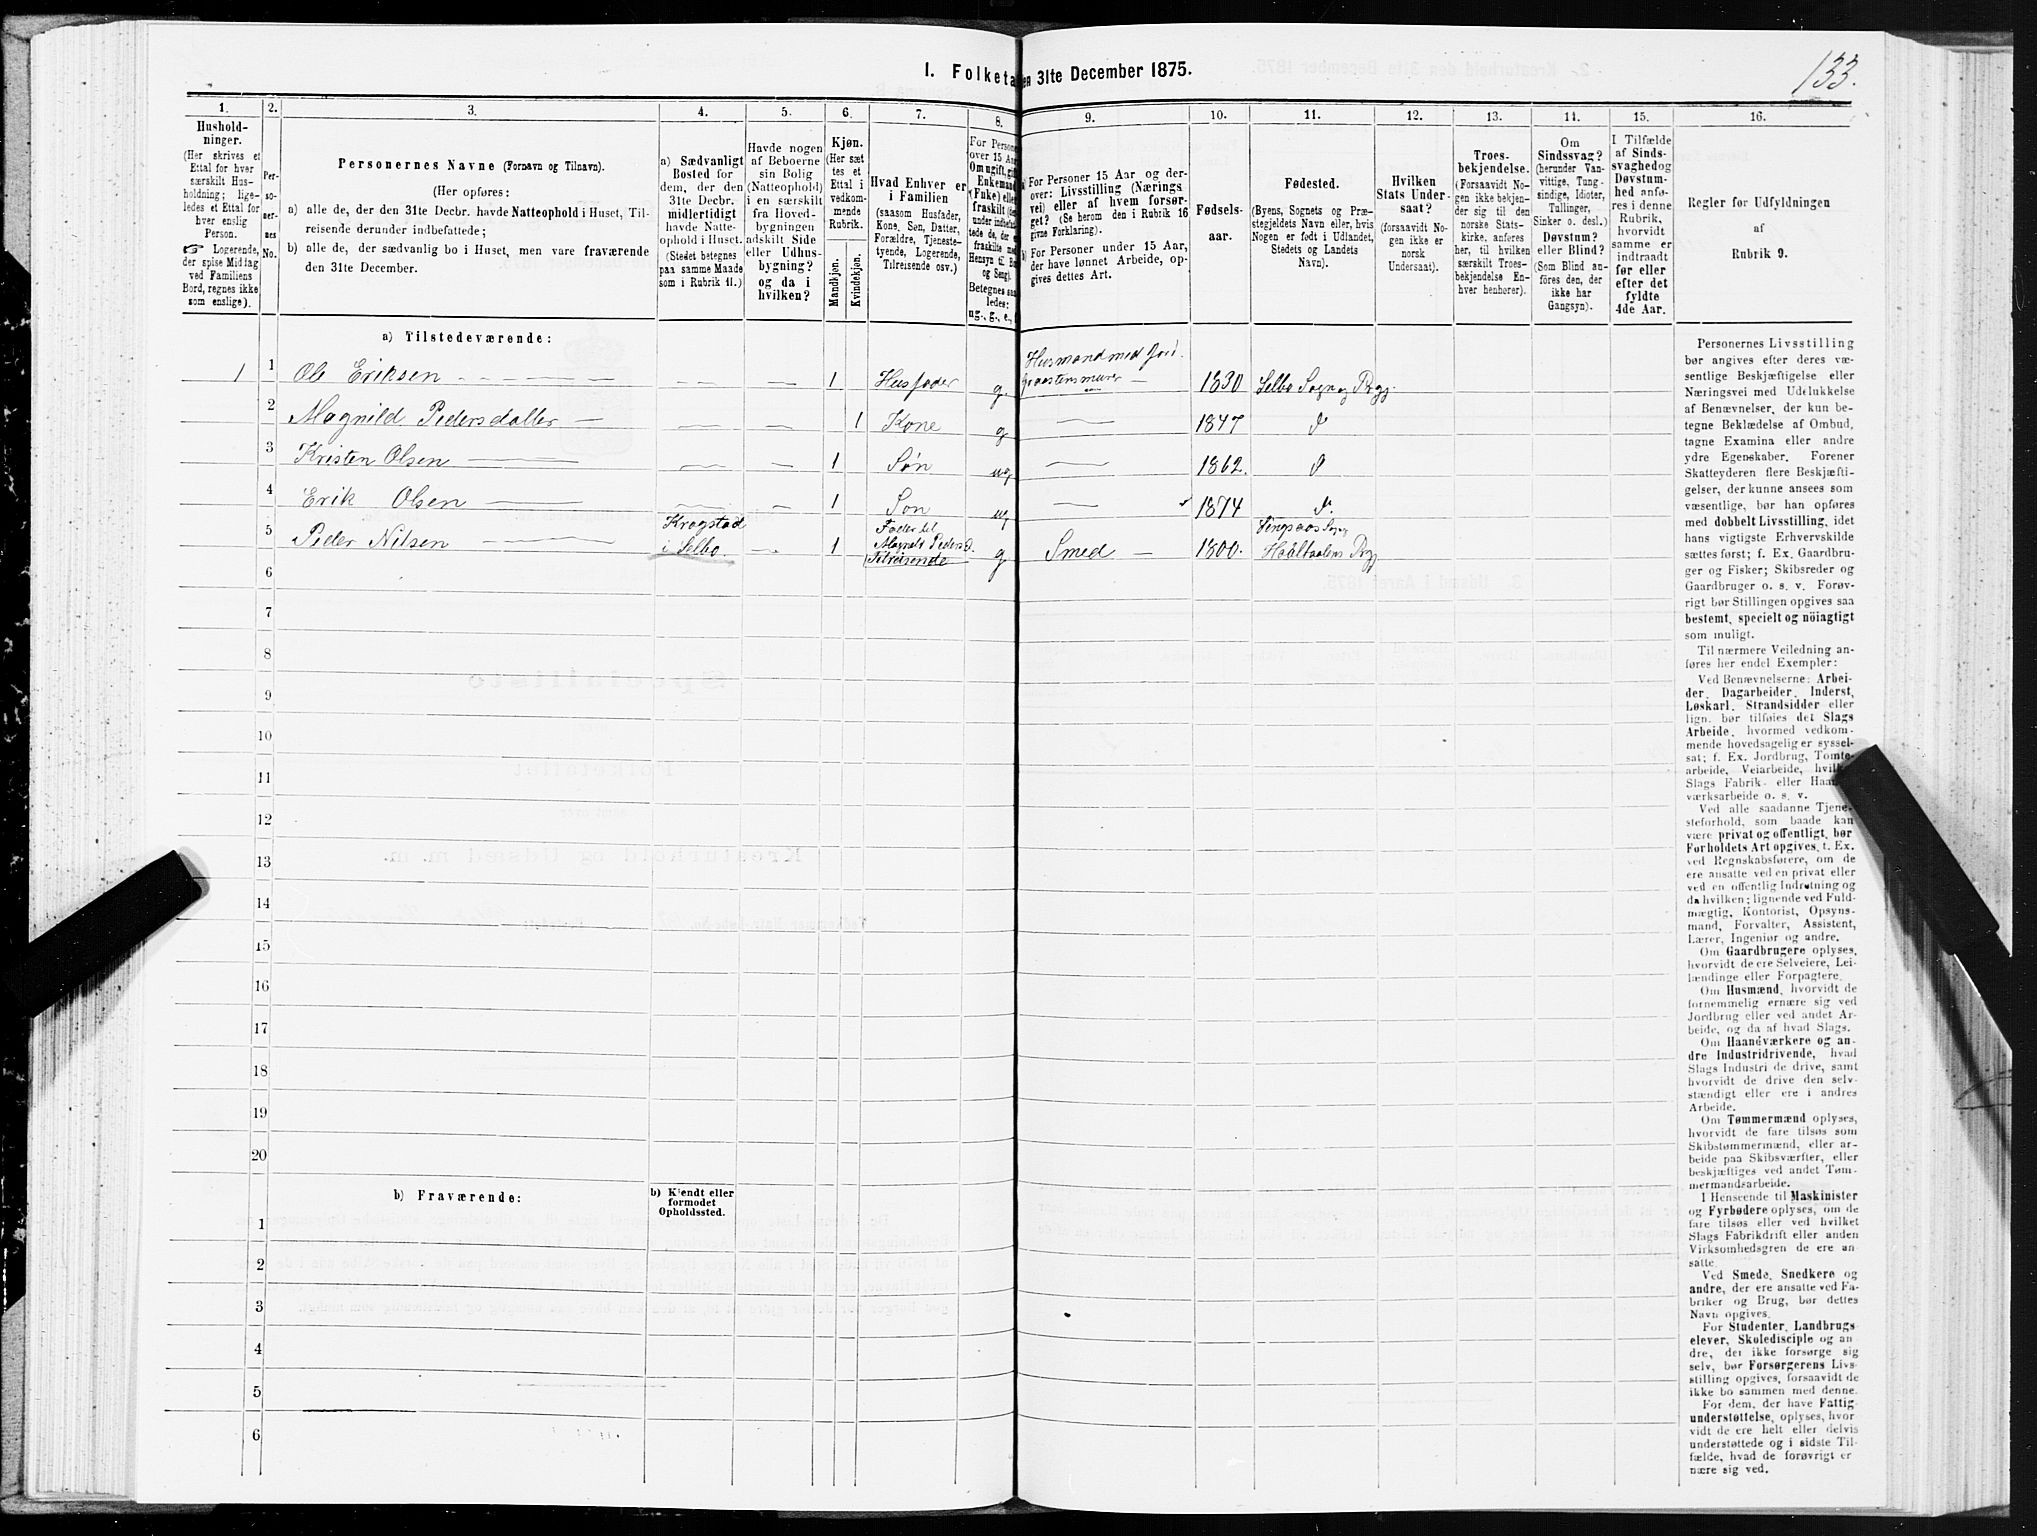 133.
I. Folketa en 31te December 1875.
1. 2. 3. 4. 5. 6. 7. 8. 9. 10. 11. 12. 13. 14. 15. 16.
Hushold-
ninger.
(Her skrives et
Ettal for hver
særskilt Hus-
holdning; lige-
ledes et Ettal for
hver enslig
Person.
☞ Logerende,
der spise Middag
ved Familiens
Bord, regnes ikke
som enslige).
Per-
so-
ner-
nes
No.
Personernes Navne (Fornavn og Tilnavn).
(Her opføres:
a) alle de, der den 31te Decbr. havde Natteophold i Huset, Til-
reisende derunder indbefattede;
b) alle de, der sædvanlig bo i Huset, men vare fraværende
den 31te December.
a) Sædvanligt
Bosted for
dem, der den
31te Decbr.
midlertidigt
havde Natte-
ophold i Huset.
(Stedet betegnes
paa samme Maade
som i Rubrik 11.)
Havde nogen
af Beboerne
sin Bolig
(Natteophold)
i en særskilt
fra Hoved-
bygningen
adskilt Side
eller Udhus-
bygning?
og da i
hvilken?
Kjøn.
(Her sæt
tes et
Ettal i
vedkom-
mende
Rubrik.
Mandkjøn.
Kvindekjøn.
Hvad Enhver er
i Familien
(saasom Husfader,
Kone, Søn, Datter,
Forældre, Tjeneste-
tyende, Logerende,
Tilreisende osv.)
For Persone
over 15 Aar
Om ugift, gift
Enkemand
(Enke) eller
fraskilt
under indbefat
tede de, der e
fraskilte med
Hensyn til Bo
og Seng).
Betegnes saa
ledes:
ug., g., e.,
a) For Personer 15 Aar og der-
over: Livsstilling (Nærings
vei) eller af hvem forsør-
get? (Se herom den i Rubrik 16
givne Forklaring).
b) For Personer under 15 Aar,
der have lønnet Arbeide, op-
gives dettes Art.
Fødsels-
aar.
Fødested.
(Byens, Sognets og Præ-
stegjeldets Navn eller, hvis
Nogen er født i Udlandet,
Stedets og Landets
Navn).
Hvilken
Stats Under-
saat?
(forsaavidt No-
gen ikke er
norsk
Undersaat).
Troes-
bekjendelse.
(Forsaavidt No-
gen ikke bekjen-
der sig til den
norske Stats-
kirke, anføres
her, til hvilken
særskilt Troes-
bekjendelse En-
hver henhører).
Om
Sindssvag?
(herunder Van-
vittige, Tung-
sindige, Idioter,
Tullinger,
Sinker o. desl.)
Døvstum?
eller Blind?
(Som Blind an-
føres den, der
ikke har
Gangsyn).
I Tilfælde
af Sinds-
svaghed og
Døvstum-
hed anfø-
res i denne
Rubrik,
hvorvidt
samme er
indtraadt
før eller
efter det
fyldte
4de Aar.
Regler for Udfyldningen
af
Rubrik 9.
a) Tilstedeværende:
Husmand med Jord.
1 1 Ole Eriksen 1 Husfader g. Graastensmurer 1830 Selbo Sogn og Prgj.
2 Magnild Pedersdatter 1 Kone g 1847 d
3 Kristen Olsen 1 Søn ug 1862. d
4 Erik Olsen 1 Søn ug 1874 d.
5 Peder Nilsen Kragstad i Selbo. 1 Fader til Magnild Pedersd. Tilreisende g Smed 1800. Singsaas Sogn Haaltaalens Prgj
6
7
8
9
10
11
12
13
14
15
16
17
18
19
20
b) Fraværende:
b) Kjendt eller
formodet
Opholdssted.
1
2
3
4
5
6
Personernes Livsstilling
bør angives efter deres væ-
sentlige Beskjæftigelse eller
Næringsvei med Udelukkelse
af Benævnelser, der kun be-
tegne Beklædelse af Ombud,
tagne Examina eller andre
ydre Egenskaber. Forener
Skatteyderen flere Beskjæfti-
gelser, der kunne ansees som
væsentlige, bør han opføres
med dobbelt Livsstilling, idet
hans vigtigste Erhvervskilde
sættes først; f. Ex. Gaardbru-
ger og Fisker; Skibsreder og
Gaardbruger o. s. v. Forøv-
rigt bør Stillingen opgives saa
bestemt, specielt og nöiagtigt
som muligt.
Til nærmere Veiledning an-
føres her endel Exempler:
Ved Benævnelserne: Arbei-
der, Dagarbeider, Inderst,
Løskarl, Strandsidder eller
lign. bør tilføies det Slags
Arbeide, hvormed vedkom-
mende hovedsagelig er syssel-
sat; f. Ex. Jordbrug, Tomte-
arbeide, Veiarbeide, hvilk
Slags Fabrik- eller Haan
værksarbeide o. s. v.
Ved alle saadanne Tjene-
steforhold, som baade kan
være privat og offentligt, bør
Forholdets Art opgives, t. Ex.
ved Regnskabsførere, om de
ere ansatte ved en privat eller
ved en offentlig Indretning og
da hvilken; lignende ved Fuld-
mægtig, Kontorist, Opsyns-
mand, Forvalter, Assistent,
Lærer, Ingeniør og andre.
Om Gaardbrugere oplyses,
hvorvidt de ere Selveiere, Lei-
lændinge eller Forpagtere.
Om Husmænd, hvorvidt de
fornemmelig ernære sig ved
Jordbrug eller ved andet Ar-
beide, og da af hvad Slags.
Om Haandværkere og an-
dre Industridrivende, hvad
Slags Industri de drive, samt
hvorvidt de drive den selv-
stændigt eller ere i andres
Arbeide.
Om Tømmermænd oplyses,
hvorvidt de fare tilsøs som
Skibstømmermænd, eller ar-
beide paa Skibsværfter, eller
beskjæftiges ved andet Tøm-
mermandsarbeide.
I Henseende til Maskinister
og Fyrbødere oplyses, om de
fare tilsøs eller ved hvilket
Slags Fabrikdrift eller anden
Virksomhedsgren de ere an-
satte.
Ved Smede, Snedkere og
andre, der ere ansatte ved Fa-
briker og Brug, bør dettes
Navn opgives.
For Studenter, Landbrugs-
elever, Skoledisciple og an-
dre, der ikke forsørge sig
selv, bør Forsørgerens Livs-
stilling opgives, forsaavidt de
ikke bo sammen med denne.
For dem, der have Fattig-
understøttelse, oplyses, hvor
vidt de ere helt eller delvis
understøttede og i sidste Til-
fælde, hvad de forøvrigt er
nære sig ved.